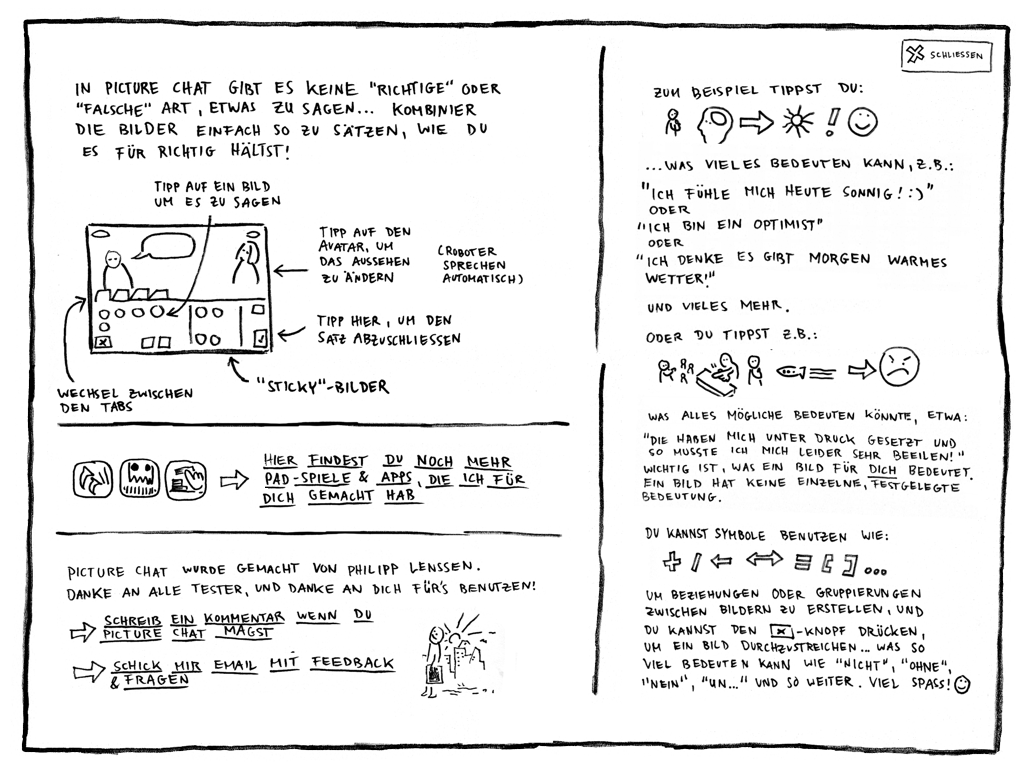 SCHLIESSEN
IN PICTURE CHAT GIBT ES KEINE "RICHTIGE" ODER
"FALSCHE" ART, ETWAS ZU SAGEN... KOMBINIER
DIE BILDER EINFACH SO ZU SÄTZEN, WIE DU
ES FÜR RICHTIG HÄLTST!
TIPP AUF EIN BILD
UM ES ZU SAGEN
TIPP AUF DEN
AVATAR, UM
DAS AUSSEHEN
ZU ÄNDERN
(ROBOTER
SPRECHEN
AUTOMATISCH)
TIPP HIER, UM DEN
SATZ ABZUSCHLIESSEN
"STICKY"-BILDER
WECHSEL ZWISCHEN
DEN TABS
HIER FINDEST DU NOCH MEHR
PAD-SPIELE & APPS, DIE ICH FÜR
DICH GEMACHT HAB
PICTURE CHAT WURDE GEMACHT VON PHILIPP LENSSEN.
DANKE AN ALLE TESTER, UND DANKE AN DICH FÜR'S BENUTZEN!
SCHREIB EIN KOMMENTAR WENN DU
PICTURE CHAT MAGST
SCHICK MIR EMAIL MIT FEEDBACK
& FRAGEN
ZUM BEISPIEL TIPPST DU:
...WAS VIELES BEDEUTEN KANN, Z.B.:
"ICH FÜHLE MICH HEUTE SONNIG! :)"
ODER
"ICH BIN EIN OPTIMIST"
ODER
"ICH DENKE ES GIBT MORGEN WARMES
WETTER!"
UND VIELES MEHR.
ODER DU TIPPST Z.B.:
WAS ALLES MÖGLICHE BEDEUTEN KÖNNTE, ETWA:
"DIE HABEN MICH UNTER DRUCK GESETZT UND
SO MUSSTE ICH MICH LEIDER SEHR BEEILEN!"
WICHTIG IST, WAS EIN BILD FÜR DICH BEDEUTET.
EIN BILD HAT KEINE EINZELNE, FESTGELEGTE
BEDEUTUNG.
DU KANNST SYMBOLE BENUTZEN WIE:
+ / ⇐ ⇔ = [ ] ...
UM BEZIEHUNGEN ODER GRUPPIERUNGEN
ZWISCHEN BILDERN ZU ERSTELLEN, UND
DU KANNST DEN [x]-KNOPF DRÜCKEN,
UM EIN BILD DURCHZUSTREICHEN... WAS SO
VIEL BEDEUTEN KANN WIE "NICHT", "OHNE",
"NEIN", "UN..." UND SO WEITER. VIEL SPASS!